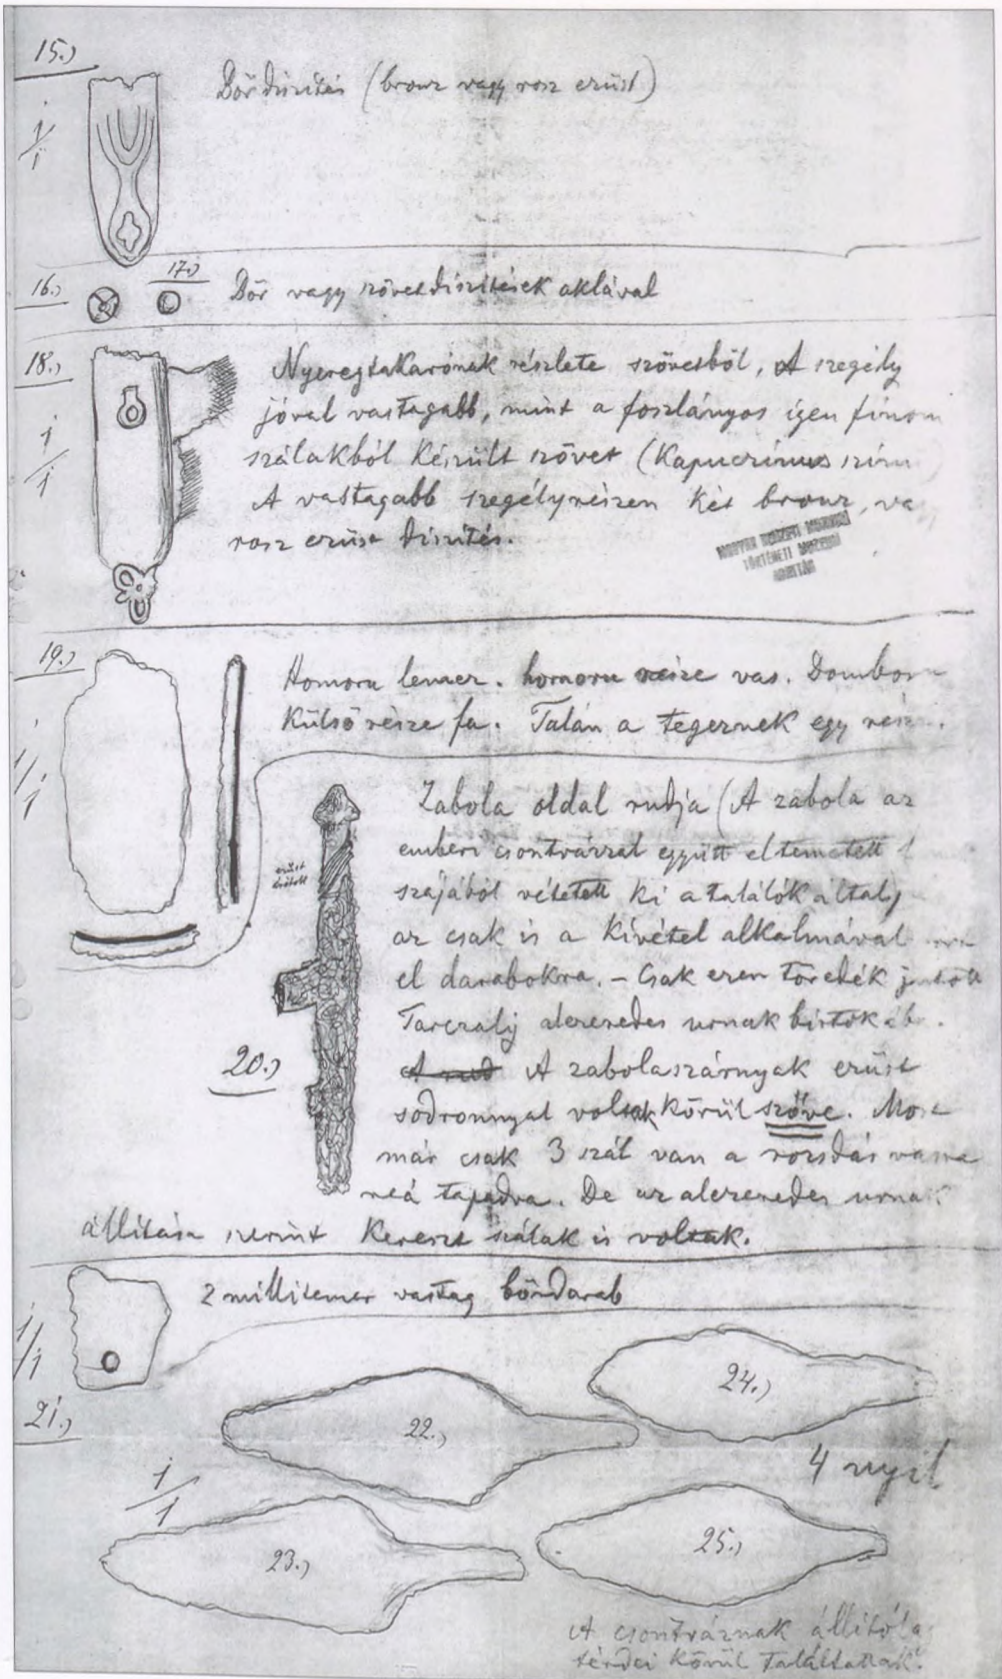 15.)
Bőrdíszítés (bronz vagy rosz ezüst)
1/1
16.)
17.)
Bőr vagy szövetdíszítések aklával
18.)
1/1
Nyeregtakarónak részlete szövetből, A szegély
jóval vastagabb, mint a foszlányos igen finom
szálakból készült szövet (Kapucinus szinü
A vastagabb szegélyrészen két bronz, va
rosz ezüst díszítés.
MAGYAR NEMZETI MÚZEUM
TÖRTÉNETI MÚZEUM
ADATTÁR
19.)
1/1
Homoru lemez. homoru része vas. Domboru
külső része fa. Talán a tegeznek egy rész
Zabola oldal rudja (A zabola az
emberi csontvázzal együtt eltemetett l
szájából vétetett ki a találók által,
az csak is a kivétel alkalmával
el darabokra. - Csak ezen töredék jutott
Tarczaly alezredes urnak birtokáb
ezüst
20.)
A rud A zabolaszárnyak ezüst
sodronnyal voltak körül szőve. Most
már csak 3 szál van a rozsdás vasra
reá tapadva. De az alezredes urnak
állitása szerint kereszt szálak is voltak.
2 millimeter vastag bőrdarab
1/1
21.)
24.)
22.)
4 nyíl
1/1
23.)
25.)
A csontváznak állítóla
térdei körül találtattak